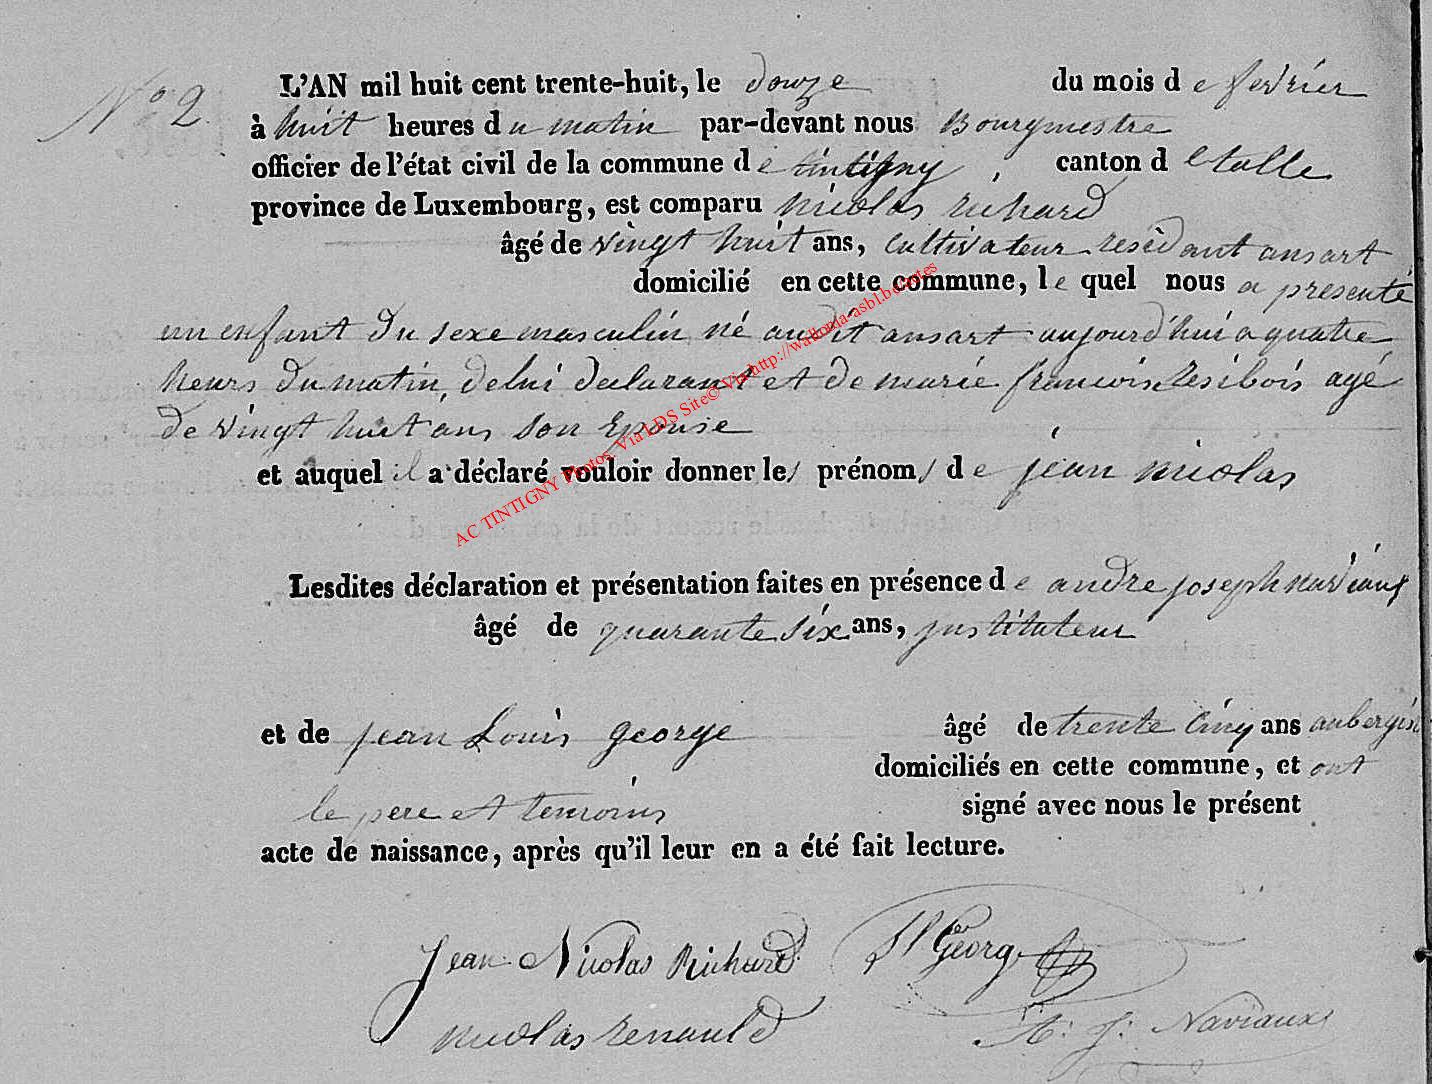 N° 2.
L'AN mil huit cent trente-huit, le douze du mois de fevrier
à huit heures du matin par-devant nous Bourgmestre
officier de l'état civil de la commune de tintigny, canton d etalle
province de Luxembourg, est comparu nicolas richard
âgé de vingt huit ans, cultivateur residant ansart
domicilié en cette commune, le quel nous a presenté
un enfant du sexe masculin né audit ansart aujourd'hui a quatre
heurs du matin, de lui declarant et de marie francois resibois agé
de vingt huit ans son epouse
et auquel il a déclaré vouloir donner les prénoms de jean nicolas
Lesdites déclaration et présentation faites en présence de andre joseph naviaux
âgé de quarante six ans, justituteur
et de jean Louis george âgé de trente cinq ans aubergis
domiciliés en cette commune, et ont
le pere et temoins signé avec nous le présent
acte de naissance, après qu'il leur en a été fait lecture.
Jean Nicolas Richard Jl George
nicolas renauld A: J: Naviaux
AC TINTIGNY Photos, Via LDS Site© Via http://wallonia-asbl.be/actes